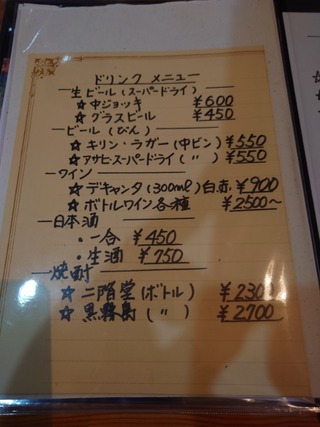 ドリンク メニュー
生ビール(スーパードライ)
☆中ジョッキ ¥600
☆グラスビール ¥450
ビール(びん)
☆キリン・ラガー(中ビン) ¥550
☆アサヒ・スーパードライ(〃) ¥550
ワイン
☆デキャンタ(300ml)白.赤. ¥900
☆ボトルワイン各種 ¥2500～
日本酒
・一合 ¥450
・生酒 ¥750
焼酎
☆二階堂(ボトル) ¥2300
☆黒霧島(〃) ¥2700